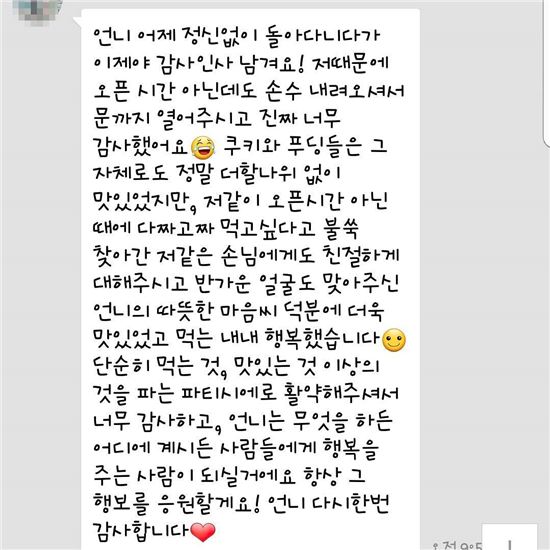 언니 어제 정신없이 돌아다니다가
이제야 감사인사 남겨요! 저때문에
오픈 시간 아닌데도 손수 내려오셔서
문까지 열어주시고 진짜 너무
감사했어요😂 쿠키와 푸딩들은 그
자체로도 정말 더할나위 없이
맛있었지만, 저같이 오픈시간 아닌
때에 다짜고짜 먹고싶다고 불쑥
찾아간 저같은 손님에게도 친절하게
대해주시고 반가운 얼굴도 맞아주신
언니의 따뜻한 마음씨 덕분에 더욱
맛있었고 먹는 내내 행복했습니다🙂
단순히 먹는 것, 맛있는 것 이상의
것을 파는 파티시에로 활약해주셔서
너무 감사하고, 언니는 무엇을 하든
어디에 계시든 사람들에게 행복을
주는 사람이 되실거에요 항상 그
행보를 응원할게요! 언니 다시한번
감사합니다❤